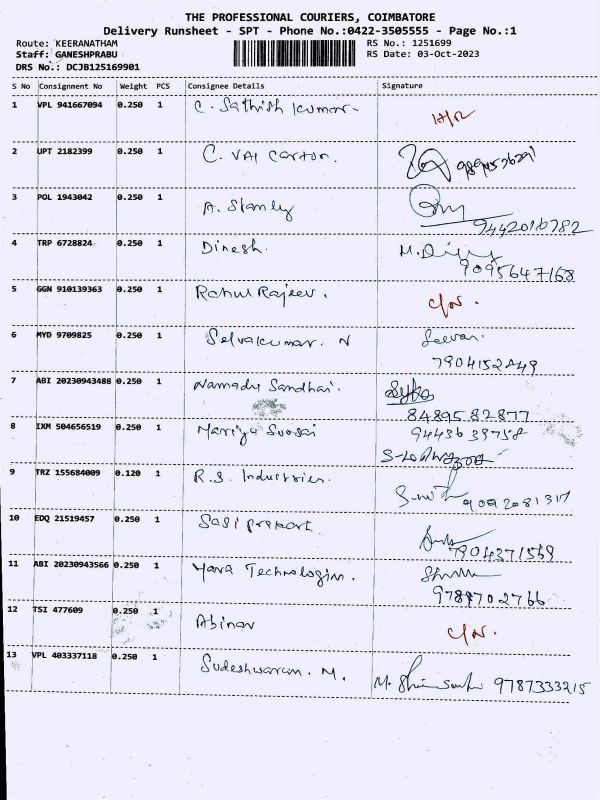 THE PROFESSIONAL COURIERS, COIMBATORE
Delivery Runsheet - SPT - Phone No.:0422-3505555 - Page No.:1
Route: KEERANATHAM RS No.: 1251699
Staff: GANESHPRABU RS Date: 03-Oct-2023
DRS No.: DCJB125169901
S No Consignment No Weight PCS Consignee Details Signature
1 VPL 941667094 0.250 1 C. Sathish Kumar.
2 UPT 2182399 0.250 1 C. VAI Carton.
3 POL 1943042 0.250 1 A. Stanly
9442010782
4 TRP 6728824 0.250 1 Dinesh.
9095647168
5 GGN 910139363 0.250 1 Rahul Rajeev.
6 MYD 9709825 0.250 1 Selvakumar. N
7904152449
7 ABI 20230943488 0.250 1 Namadu Sandhai.
8489582877
8 IXM 504656519 0.250 1 Mariya Susai
9443639758
9 TRZ 155684009 0.120 1 R.S. Industries.
10 EDQ 21519457 0.250 1 Sasi Prakart
7904371569
11 ABI 20230943566 0.250 1 Yara Technologies.
9789702766
12 TSI 477609 0.250 1 Abinav
13 VPL 403337118 0.250 1 Sudeshwaran. M.
9787333215